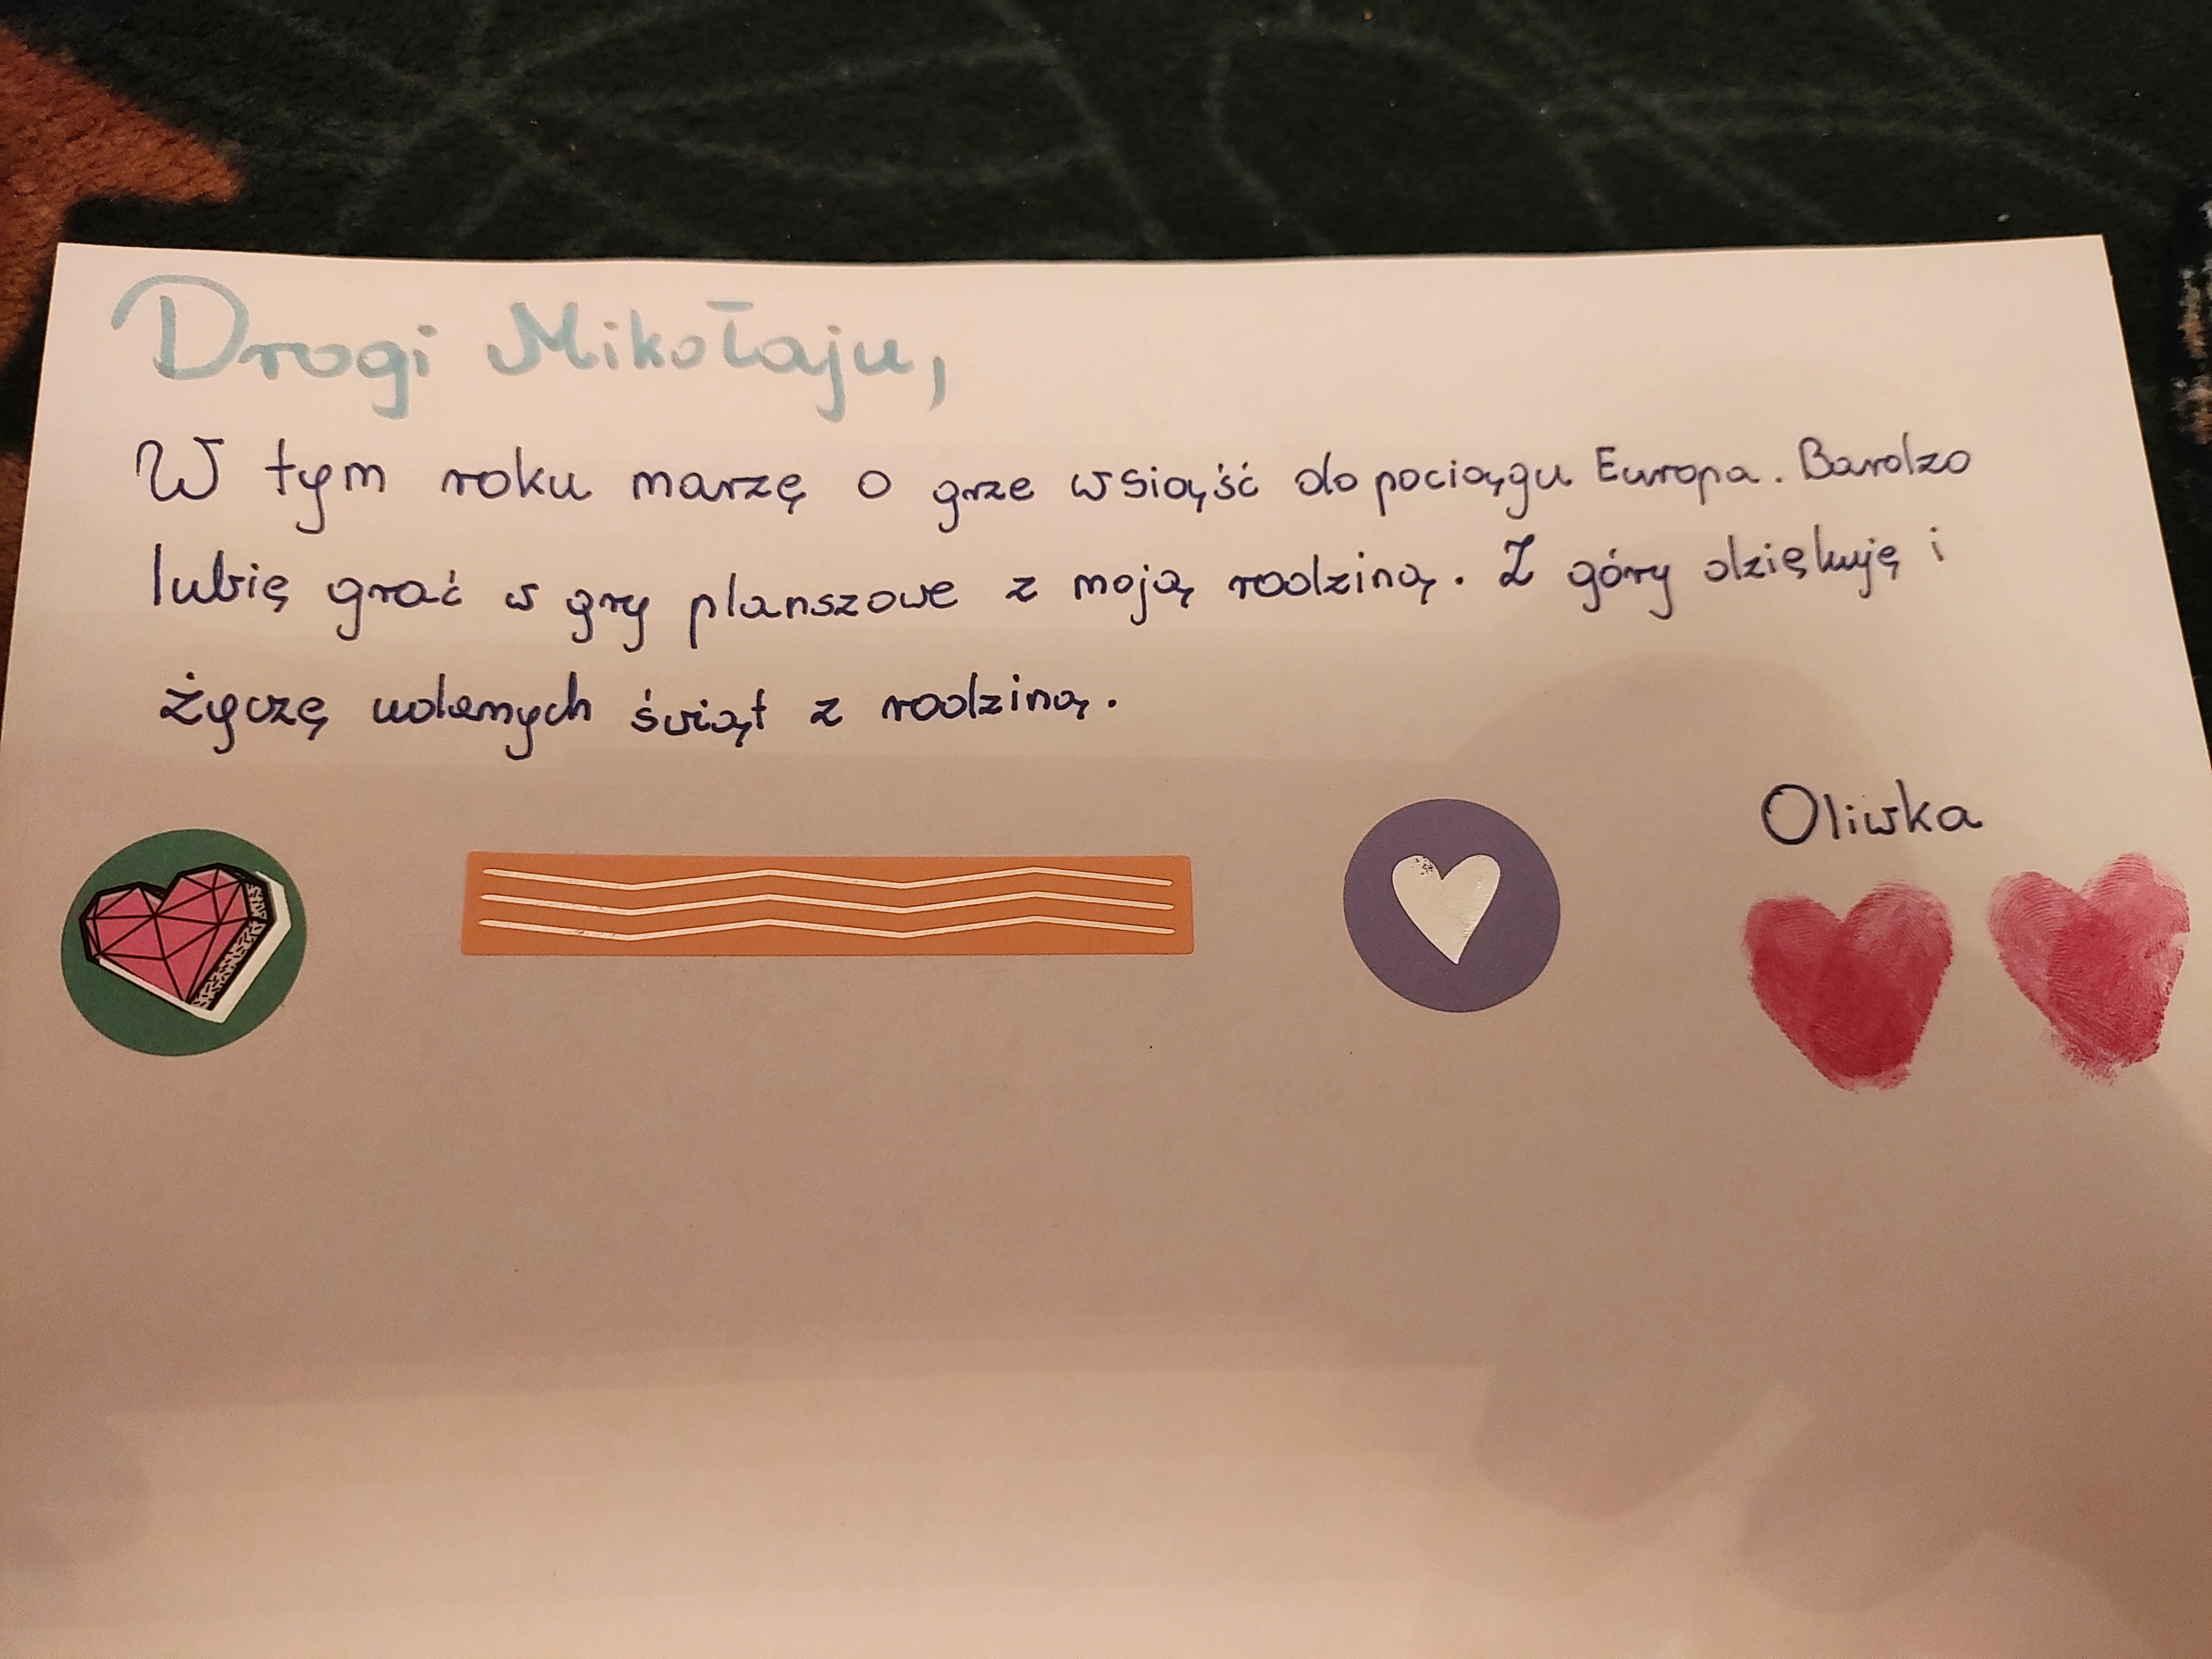 Drogi Mikołaju,
W tym roku marzę o grze wsiąść do pociągu Europa. Bardzo
lubię grać w gry planszowe z moją rodziną. Z góry dziękuję i
życzę udanych świąt z rodziną.
Oliwka